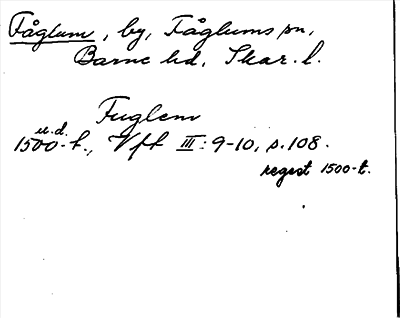 Fåglum, by, Fåglums sn,
Barne hd, Skar. l.
Fuglem
u.d.
1500-t., Vft III: 9-10, s. 108.
regest 1500-t.